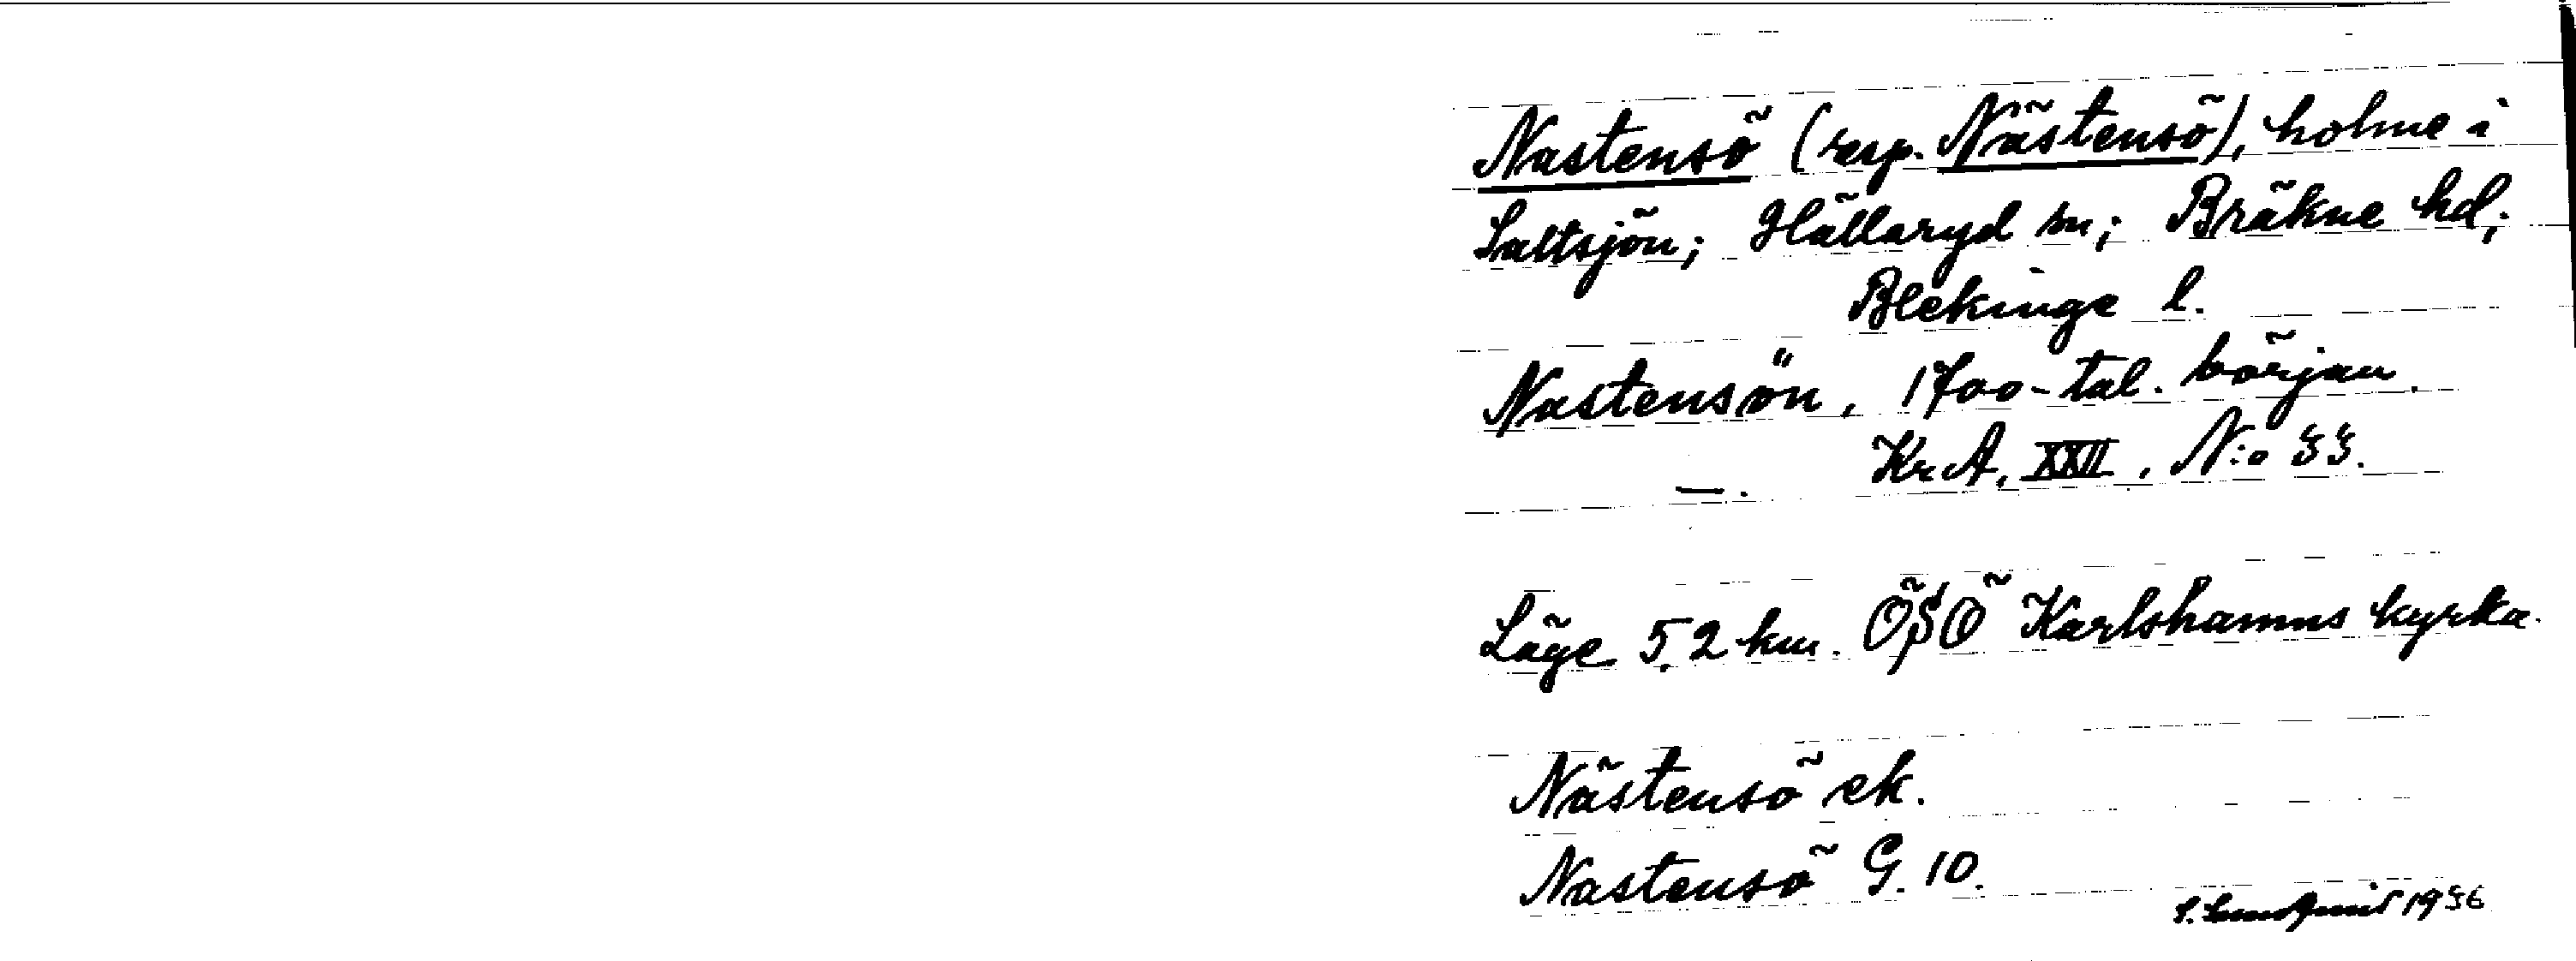 Nastensö (resp. Nästensö), holme i
Saltsjön; Hällaryd sn; Bräkne hd;
Blekinge l.
Nastensön, 1700-tal. början.
—. KrA, XXII, N:o 33.
Läge 5,2 km. ÖSÖ Karlshamns kyrka.
Nästensö ek.
Nastensö G. 10.
S. Sundquist 1936